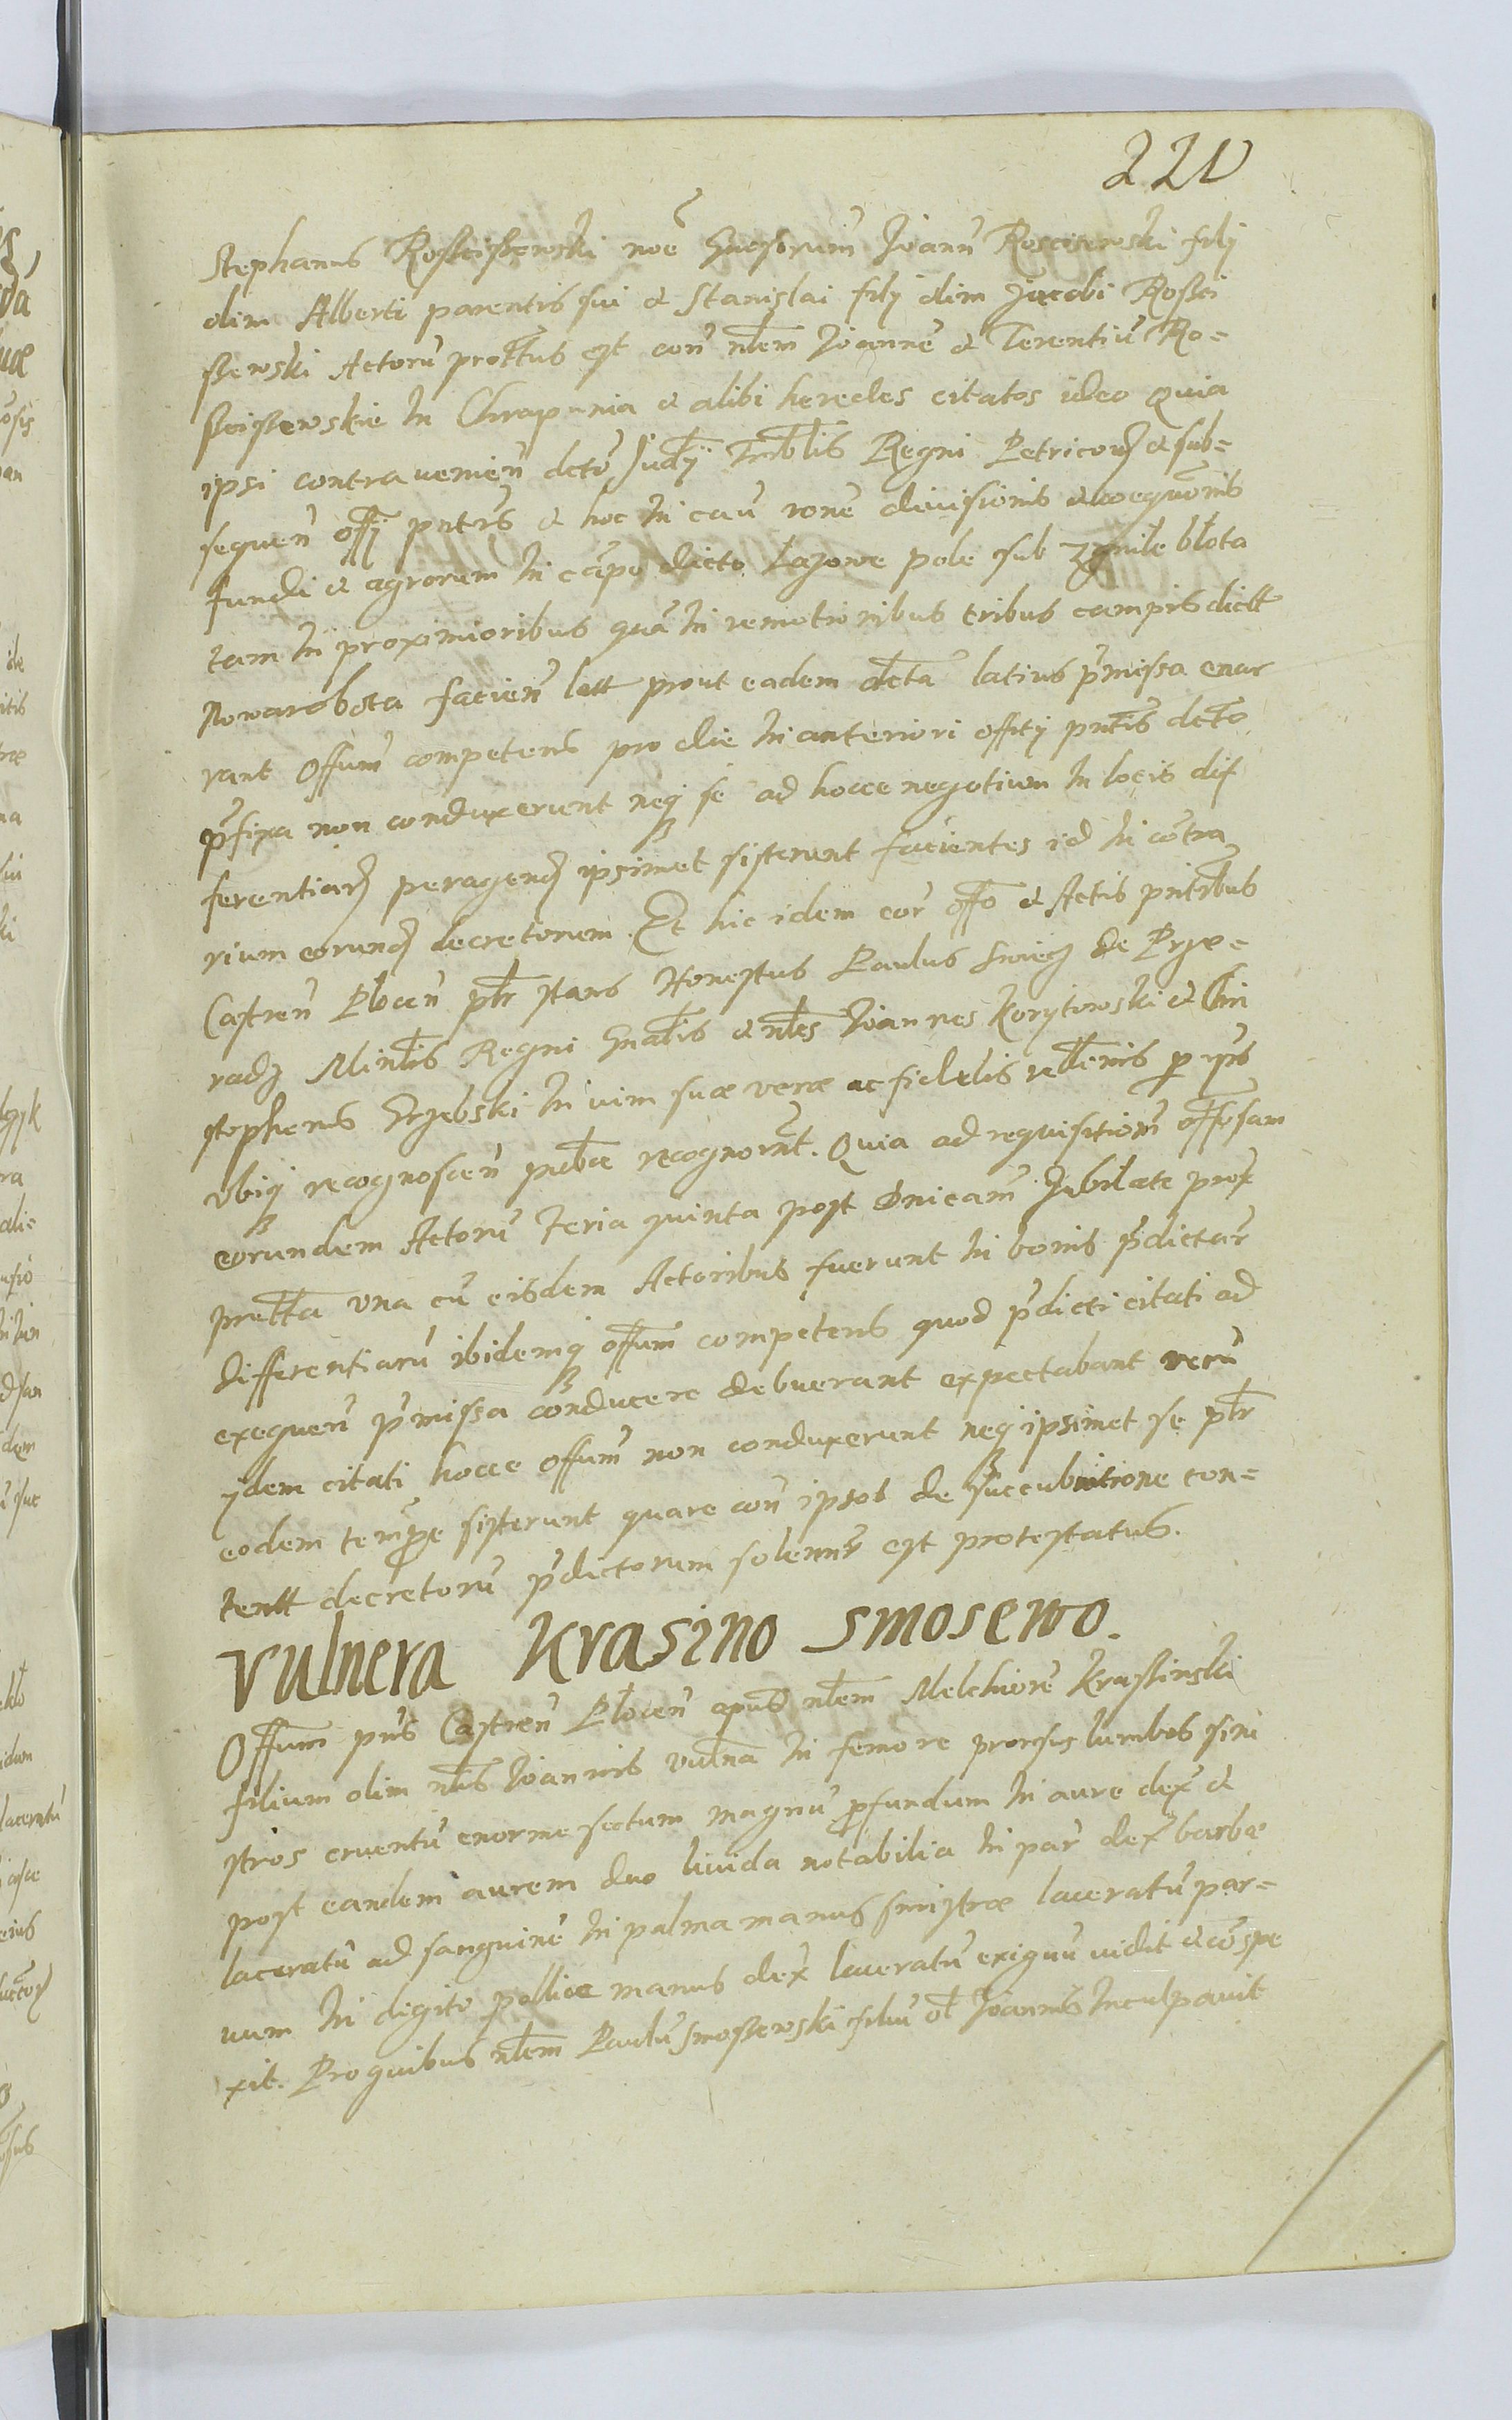 221
Stephanus Rosciszewski noe Gnosorum Joann Rosciszewski filij
olim Alberti parentis sui & Stanislai filij olim Jacobi Rosci
szewski Actoru prottus est con nlem Joanne & Terentiu Ro-
sciszewskie in Chrapunia & alibi heredes citatos ideo quia
ipsi contravenien dcto Judij Triblis Regni Petricov & sub-
sequen offij pntis & hoc in cau rone divisionis & coequonis
fundi & agrorum in capo dicto Lazowe pole sub zgnile blota
tam in proximioribus qua in remotioribus tribus campis dictt
Nowarobota facien latt prout eadem dcta latius pmissa enar
rant Offum competens pro die in anteriori offity pntis dcto
pfixa non conduxerunt neq se ad hocce negotium in locis dif
ferentiar peragend ipsimet sisterunt facientes id in contra
rium eorund decretorum. Et hic idem cor offo & Actis pntibus
Castren Plocen plr stans Honestus Paulus de Prze-
radz Minlis Regni Gnalis & nles Joannes Korytowski & Chri
stopherus Grzebski in vim suae verae ac fidelis rellonis p ips
ubiq recognoscen publce recognornt. Quia ad requisitiom offosam
eorundem Actoru feria quinta post Dnicam Jubilate prox
prettta una cu eisdem Actoribus fuerunt in bonis pdictar
differentiaru ibidemq offum competens quod pdicti citati ad
exequen pmissa conducere debuerant expectabant veru
ijdem citati hocce offum non conduxerunt neq ipsimet se plr
eodem tempre sisterunt quare con ipsos de succubuitione con-
tentt decretoru pdictorum solennr est protestatus.
Vulnera Krasino Smosewo.
Offum pns Castren Plocen apud nlem Melchiore Krassinski
filium olim nlis Joannis vulna in femore prorsus lumbos sini
stros cruentu enorme sectum magnu pfundum in aure dex &
post eandem aurem duo livida notabilia in par dex barbae
laceratu ad sanguine in palma manus sinistrae laceratu par-
vum in degito pollice manus dex laceratu exiguu vidit & conspe
xit. Pro quibus nlem Paulu Smossewski filiu ol Joannis inculpavit